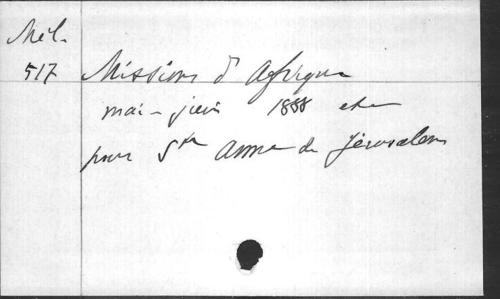 Mél.
517 Missions d'Afrique
mai-juin 1888 etc
pour Ste Anne de Jérusalem